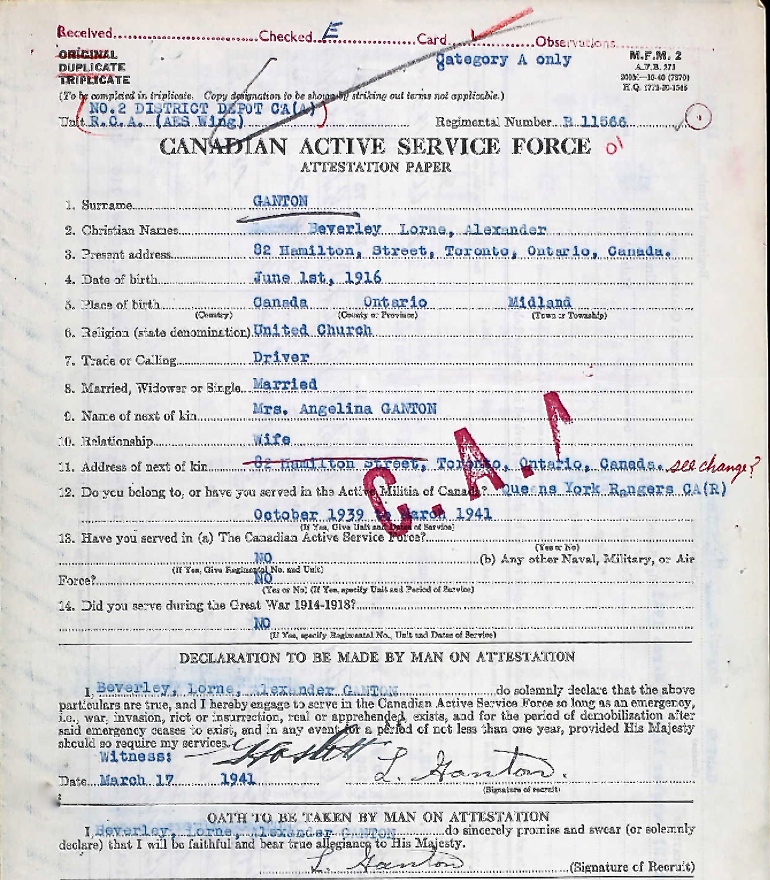 Received Checked E Card Observations
ORIGINAL
DUPLICATE
TRIPLICATE
Category A only
M.F.M. 2
A.F.B. 271
H.Q. 1772-39-1546
(To be completed in triplicate. Copy designation to be shown by striking out terms not applicable.)
NO.2 DISTRICT DEPOT CA(A)
Unit R.C.A. (AES Wing) Regimental Number B 11566
CANADIAN ACTIVE SERVICE FORCE
01
ATTESTATION PAPER
1. Surname GANTON
2. Christian Names Beverley Lorne, Alexander
3. Present address 82 Hamilton, Street, Toronto, Ontario, Canada.
4. Date of birth June 1st, 1916
5. Place of birth Canada Ontario Midland
(Country) (County or Province) (Town or Township)
6. Religion (state denomination) United Church
7. Trade or Calling Driver
8. Married, Widower or Single Married
9. Name of next of kin Mrs. Angelina GANTON
10. Relationship Wife
11. Address of next of kin 82 Hamilton Street, Toronto, Ontario, Canada. see change?
C.A.A
12. Do you belong to, or have you served in the Active Militia of Canada? Queens York Rangers CA(R)
October 1939 to March 1941
(If Yes, Give Unit and Dates of Service)
13. Have you served in (a) The Canadian Active Service Force?
(Yes or No)
NO (b) Any other Naval, Military, or Air
(If Yes, Give Regimental No. and Unit)
Force? NO
(Yes or No) (If Yes, specify Unit and Period of Service)
14. Did you serve during the Great War 1914-1918?
NO
(If Yes, specify Regimental No., Unit and Dates of Service)
DECLARATION TO BE MADE BY MAN ON ATTESTATION
I, Beverley, Lorne, Alexander GANTON do solemnly declare that the above
particulars are true, and I hereby engage to serve in the Canadian Active Service Force so long as an emergency,
i.e., war, invasion, riot or insurrection, real or apprehended, exists, and for the period of demobilization after
said emergency ceases to exist, and in any event for a period of not less than one year, provided His Majesty
should so require my services.
Witness:
L. Ganton.
Date March 17 1941 (Signature of recruit)
OATH TO BE TAKEN BY MAN ON ATTESTATION
I, Beverley, Lorne, Alexander GANTON do sincerely promise and swear (or solemnly
declare) that I will be faithful and bear true allegiance to His Majesty.
L. Ganton (Signature of Recruit)